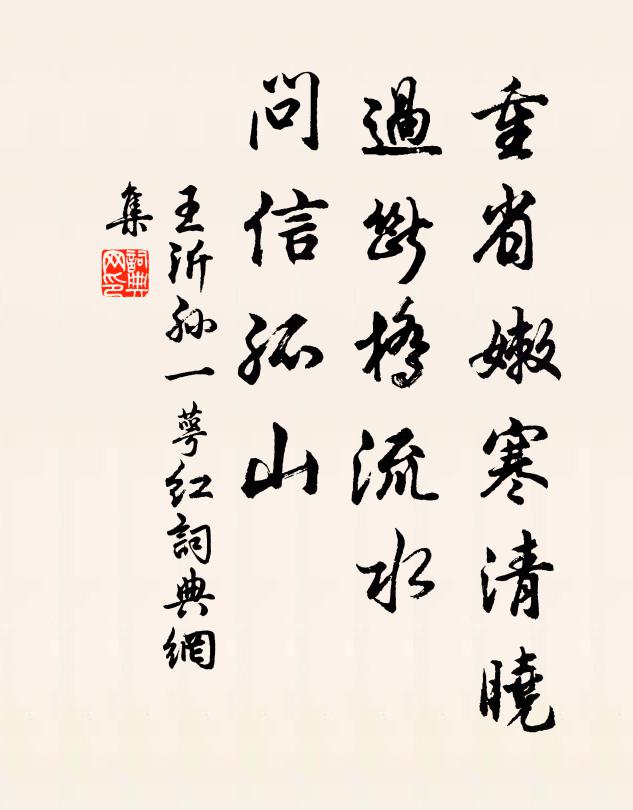 重省嫩寒清曉
過斷橋流水
問信孤山
王沂孫一萼紅詞典網
集
詞典
网印